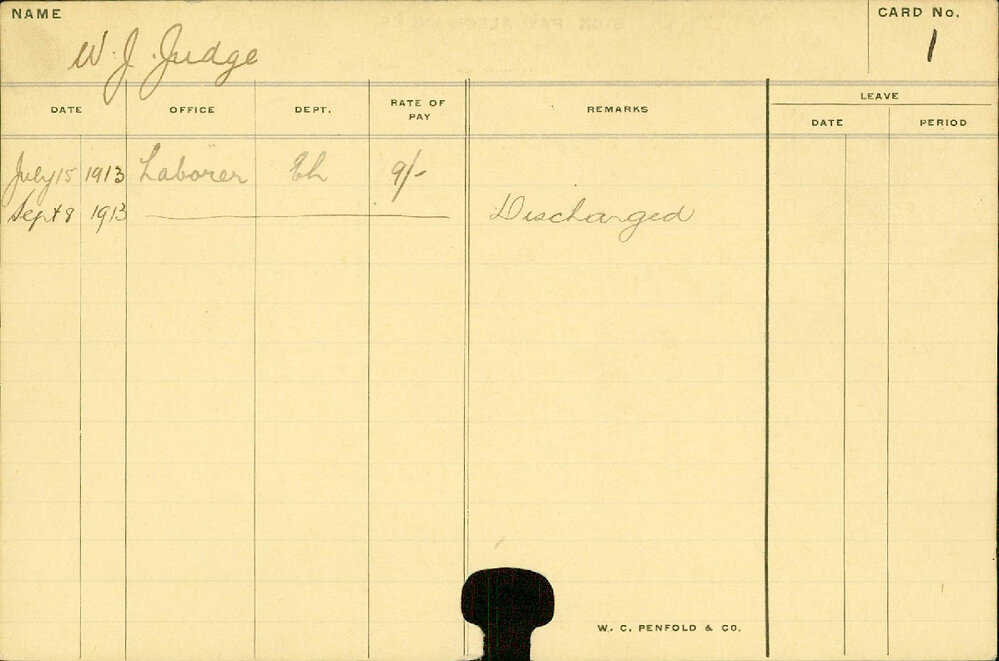 NAME
W. J. Judge
CARD No.
1
DATE OFFICE DEPT. RATE OF PAY REMARKS LEAVE
DATE PERIOD
July 15 1913 Laborer Eh 9/-
Sept 8 1913 Discharged
W. C. PENFOLD & CO.